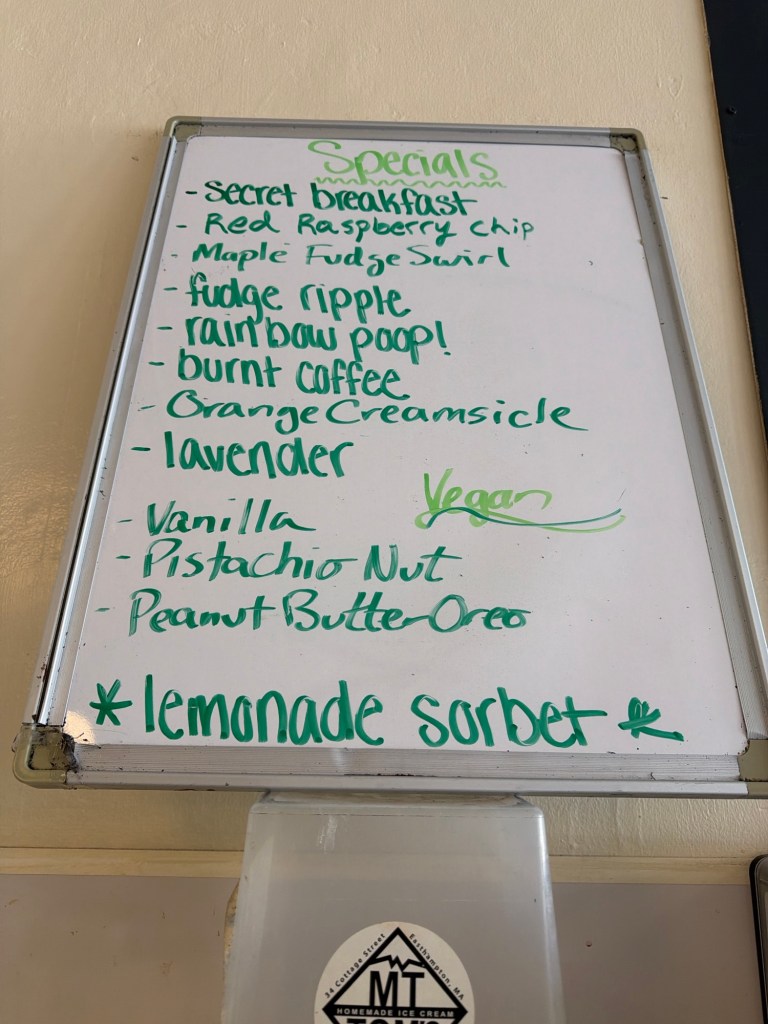 Specials
- secret breakfast
- Red Raspberry chip
- Maple Fudge Swirl
- fudge ripple
- rainbow poop!
- burnt coffee
- Orange Creamsicle
- lavender
Vegan
- Vanilla
- Pistachio Nut
- Peanut Butter Oreo
* lemonade sorbet *
34 Cottage Street Easthampton, MA
MT
HOMEMADE ICE CREAM
TOM'S